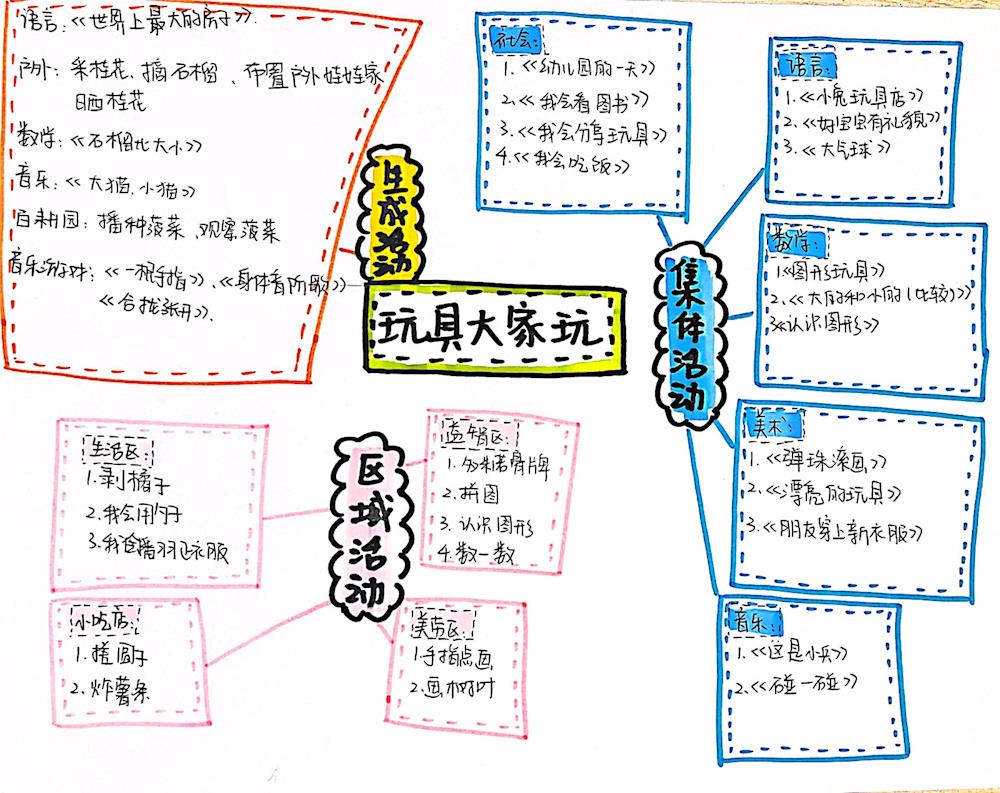 语言：《世界上最大的房子》
户外：采桂花、摘石榴、布置户外娃娃家
晒桂花
数学：《石榴比大小》
音乐：《大猫、小猫》
自耕园：播种菠菜、观察菠菜
音乐游戏：《一根手指》、《身体音阶歌》
《合拢张开》、
生成活动
玩具大家玩
集体活动
社会：
1.《幼儿园的一天》
2.《我会看图书》
3.《我会分享玩具》
4.《我会吃饭》
语言：
1.《小兔玩具店》
2.《好宝宝有礼貌》
3.《大气球》
数学：
1《图形玩具》
2.《大的和小的（比较）》
3《认识图形》
美术：
1.《弹珠滚画》
2.《漂亮的玩具》
3.《朋友穿上新衣服》
音乐：
1.《这是小兵》
2.《碰一碰》
区域活动
生活区：
1.剥橘子
2.我会用勺子
3.我会叠衣服
益智区：
1.多米诺骨牌
2.拼图
3.认识图形
4.数一数
小吃店：
1.搓圆子
2.炸薯条
美劳区：
1.手指点画
2.画树叶